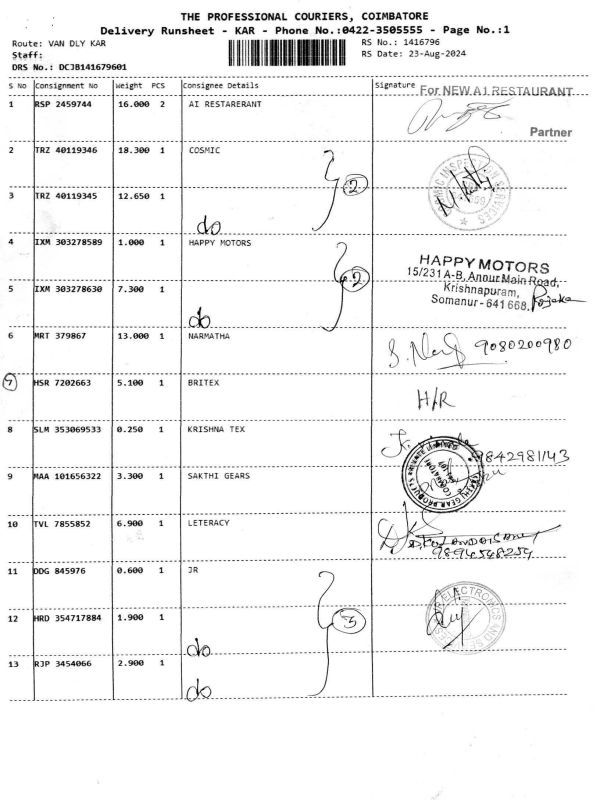 THE PROFESSIONAL COURIERS, COIMBATORE
Delivery Runsheet - KAR - Phone No.:0422-3505555 - Page No.:1
Route: VAN DLY KAR
RS No.: 1416796
Staff:
RS Date: 23-Aug-2024
DRS No.: DCJB141679601
S No Consignment No Weight PCS Consignee Details Signature
For NEW A1 RESTAURANT
1 RSP 2459744 16.000 2 AI RESTARERANT
Partner
2 TRZ 40119346 18.300 1 COSMIC
2
3 TRZ 40119345 12.650 1
do
4 IXM 303278589 1.000 1 HAPPY MOTORS
HAPPY MOTORS
15/231 A-B, Anour Main Road,
2
5 IXM 303278630 7.300 1
Krishnapuram,
Somanur - 641 668.
do
6 MRT 379867 13.000 1 NARMATHA
9080200980
7 HSR 7202663 5.100 1 BRITEX
H/R
8 SLM 353069533 0.250 1 KRISHNA TEX
9842981143
9 MAA 101656322 3.300 1 SAKTHI GEARS
10 TVL 7855852 6.900 1 LETERACY
9894548254
11 DDG 845976 0.600 1 JR
12 HRD 354717884 1.900 1
ELECTRONICS AND
do
13 RJP 3454066 2.900 1
do